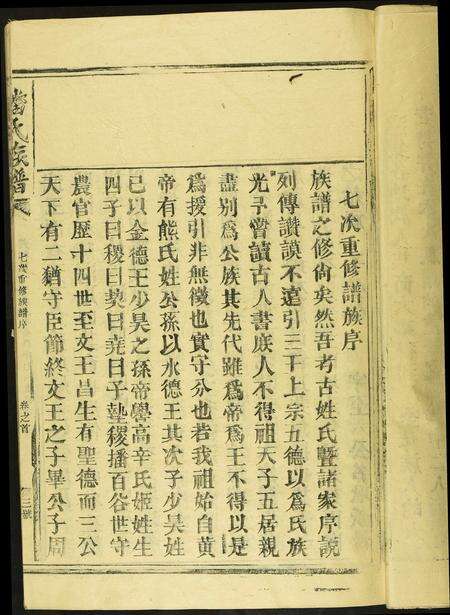 七次重修譜族序
族譜之修尚矣然吾考古姓氏暨諸家序說
列傳讚謨不遠引三干上宗五德以為氏族
光早嘗讀古人書庶人不得祖天子五居親
盡別為公族其先代雖為帝為王不得以是
為援引非無徵也實守分也若我祖始自黃
帝有熊氏姓公孫以水德王其次子少昊姓
已以金德王少昊之孫帝嚳高辛氏姬姓生
四子曰稷曰契曰堯曰子摯稷播百谷世守
農官歷十四世至文王昌生有聖德而三公
天下有二猶守臣節終文王之子畢公子周
氏族譜
七次重修族譜序
卷之首
三號